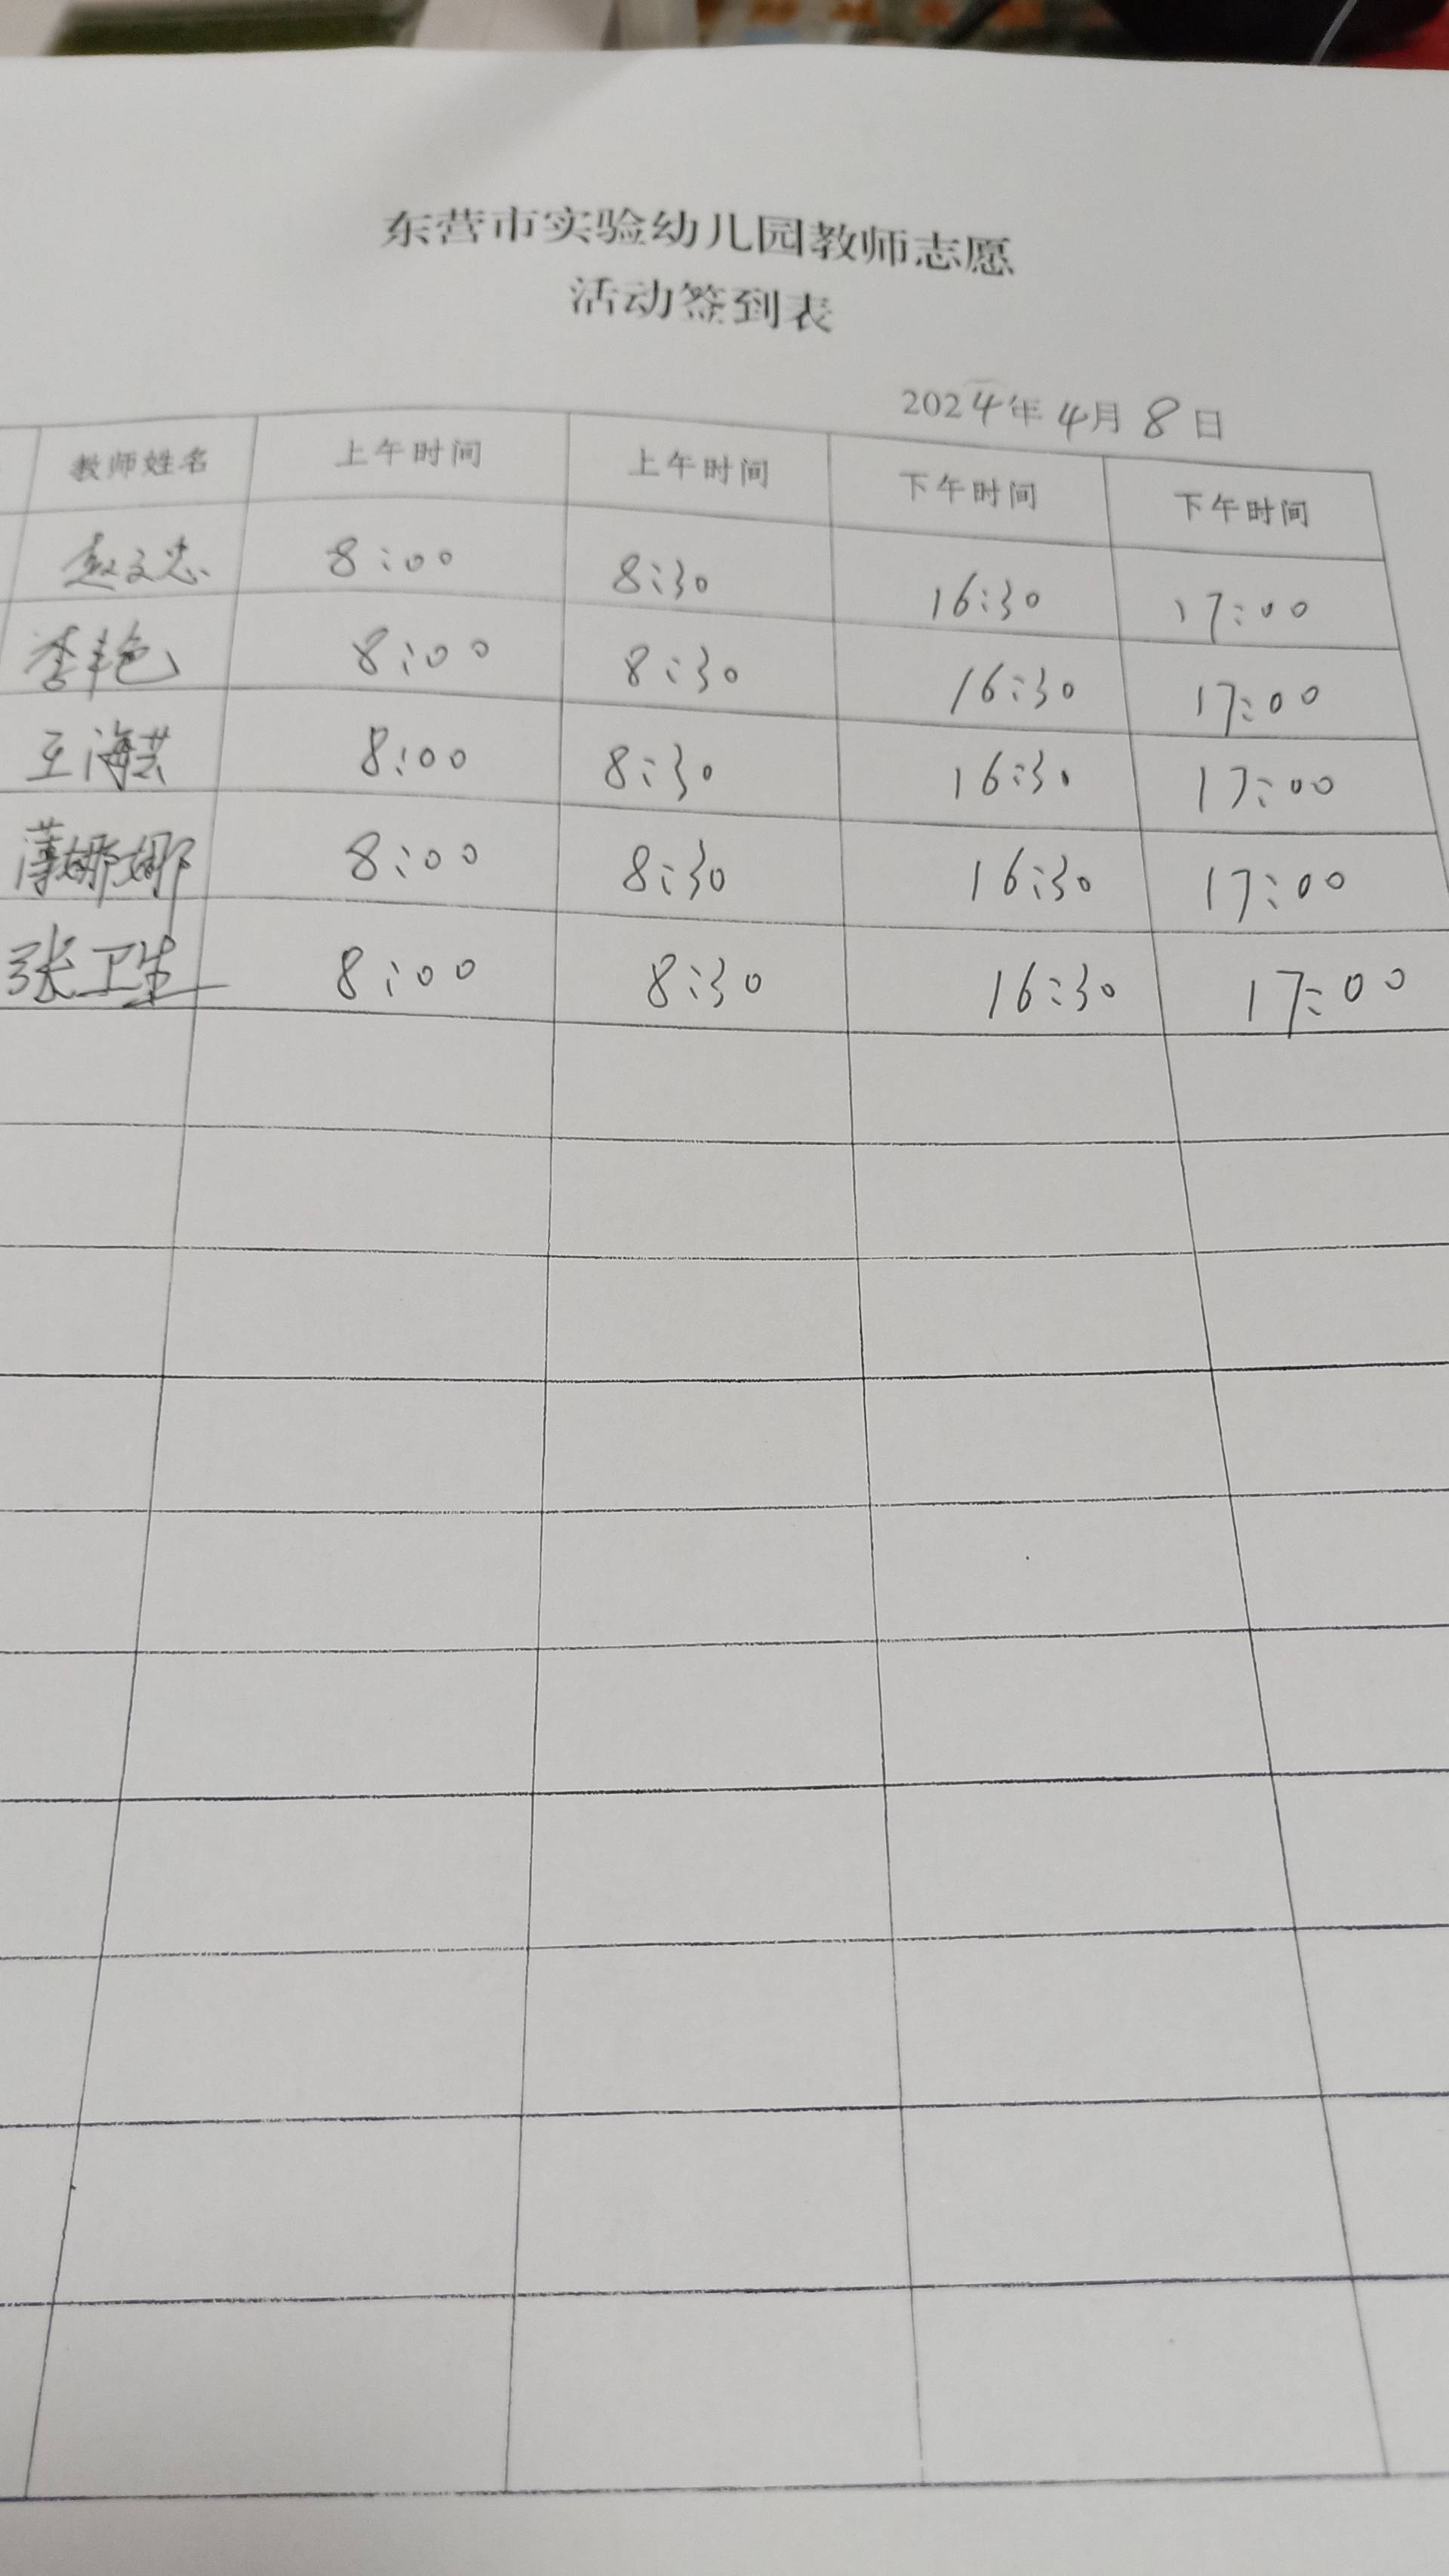 东营市实验幼儿园教师志愿
活动签到表
2024年4月8日
教师姓名 上午时间 上午时间 下午时间 下午时间
赵文忠 8:00 8:30 16:30 17:00
李艳 8:00 8:30 16:30 17:00
王海芸 8:00 8:30 16:30 17:00
薄娜娜 8:00 8:30 16:30 17:00
张卫生 8:00 8:30 16:30 17:00